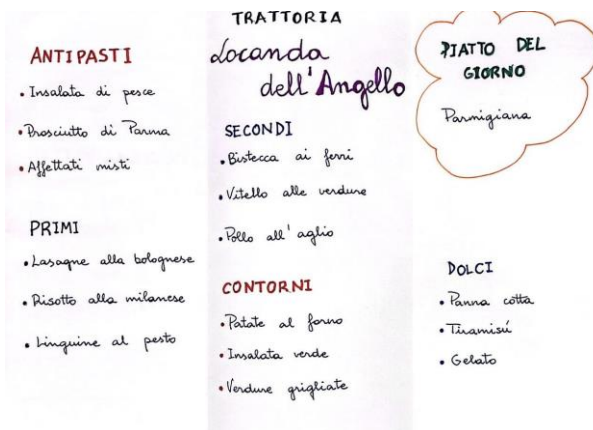 ANTIPASTI
• Insalata di pesce
• Prosciutto di Parma
• Affettati misti
PRIMI
• Lasagne alla bolognese
• Risotto alla milanese
• Linguine al pesto
TRATTORIA
Locanda
dell'Angello
SECONDI
• Bistecca ai ferri
• Vitello alle verdure
• Pollo all'aglio
CONTORNI
• Patate al forno
• Insalata verde
• Verdure grigliate
PIATTO DEL
GIORNO
Parmigiana
DOLCI
• Panna cotta
• Tiramisú
• Gelato